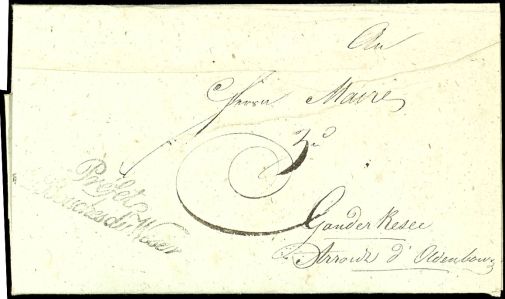 An
Herrn Maire
zu
Préfet
Bouches du Weser
Ganderkesee
Arrond. d'Oldenbourg